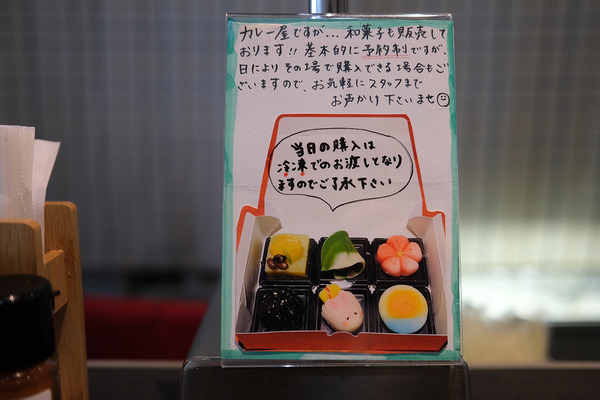 カレー屋ですが... 和菓子も販売して
おります!! 基本的に予約制ですが、
日によりその場で購入できる場合もご
ざいますので、お気軽にスタッフまで
お声かけ下さいませ☺
当日の購入は
冷凍でのお渡しとなり
ますのでご了承下さい